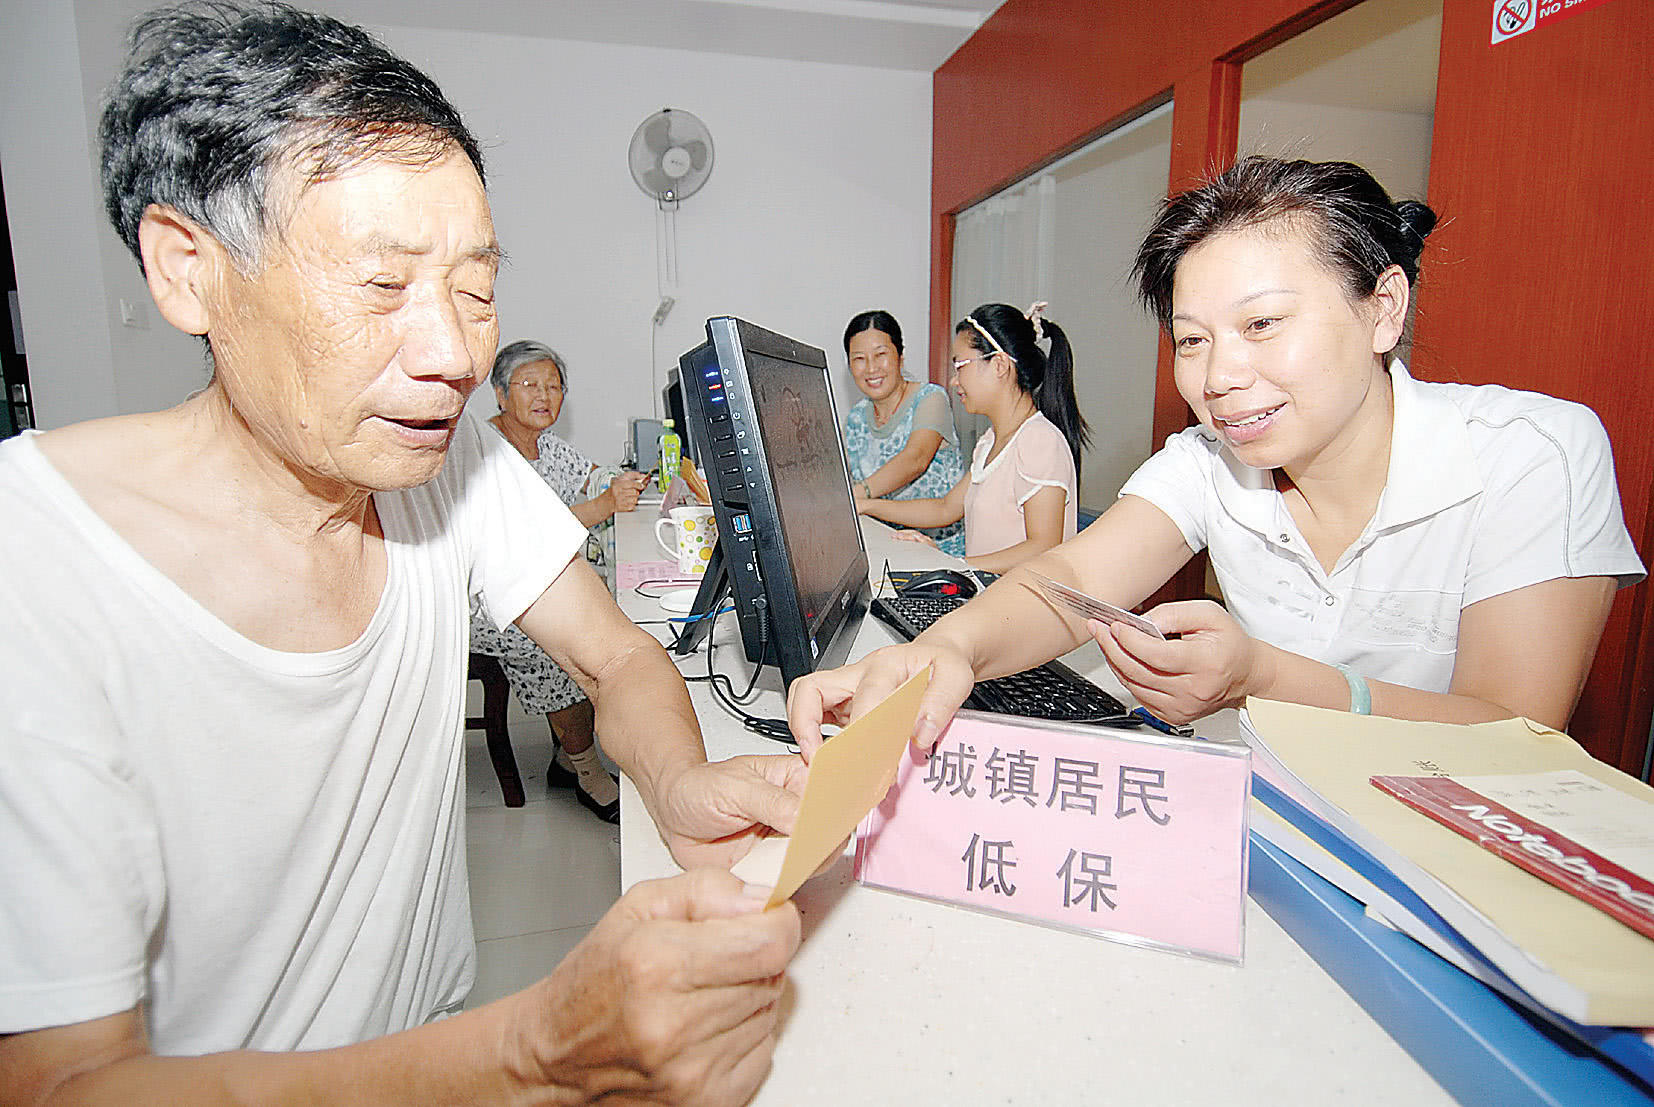 NO SM
城镇居民
低 保
Notebook